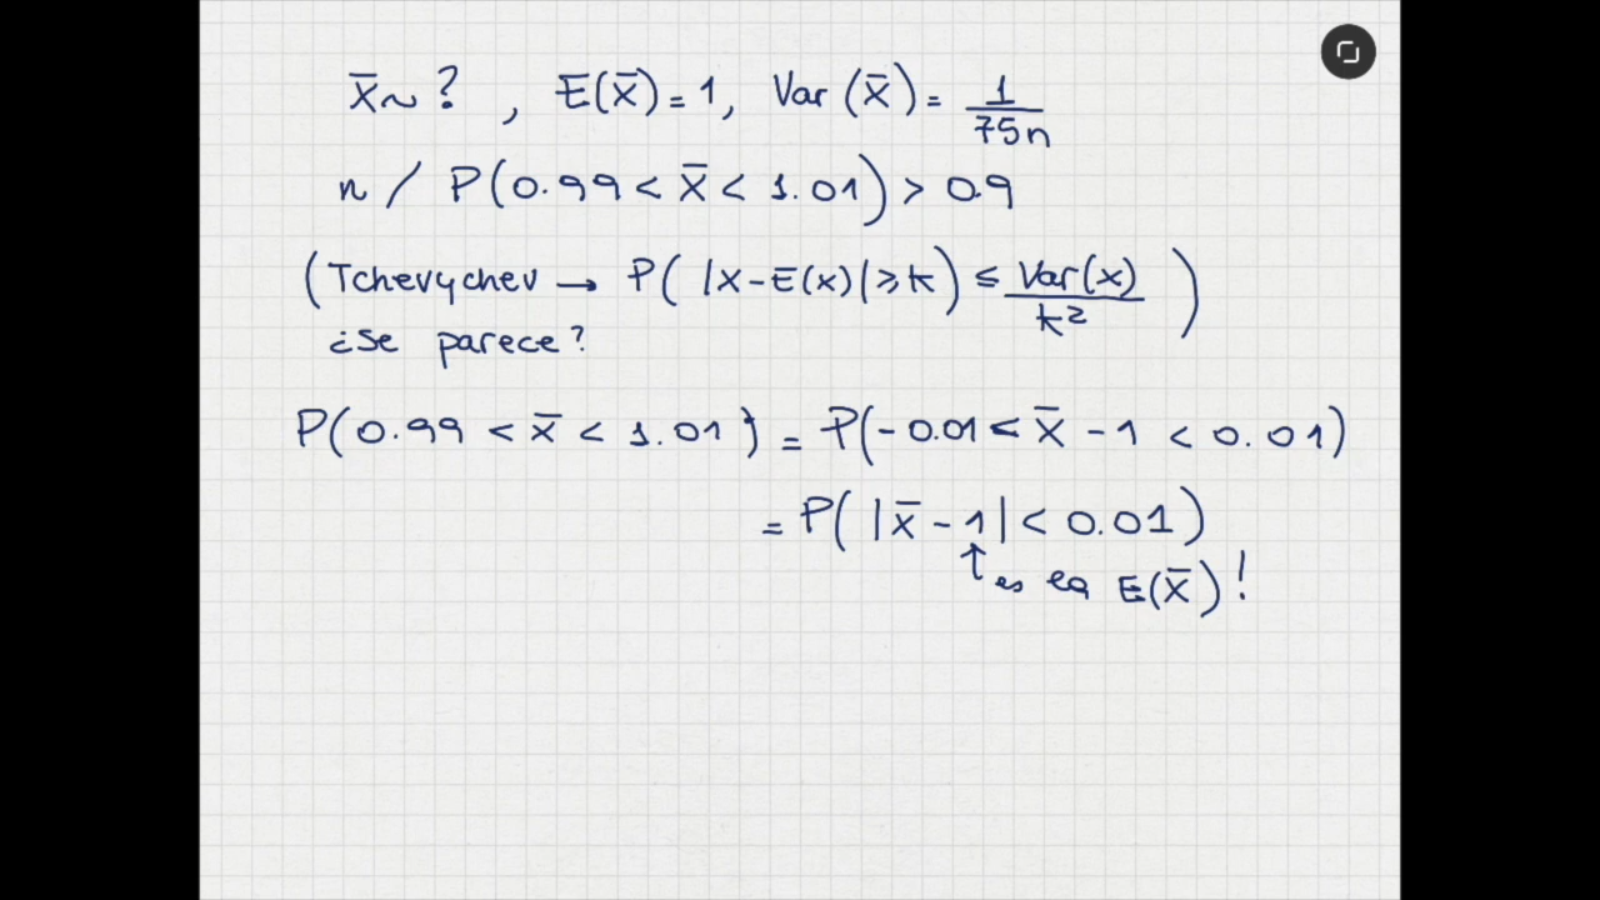 x̄ ~ ? , E(x̄) = 1, Var (x̄) = 1/75n
n / P(0.99 < x̄ < 1.01) > 0.9
(Tchevychev → P( |x - E(x)| ⩾ k) ≤ Var(x)/k² )
¿Se parece?
P(0.99 < x̄ < 1.01) = P(-0.01 < x̄ - 1 < 0.01)
= P( |x̄ - 1| < 0.01)
↑ es la E(x̄)!